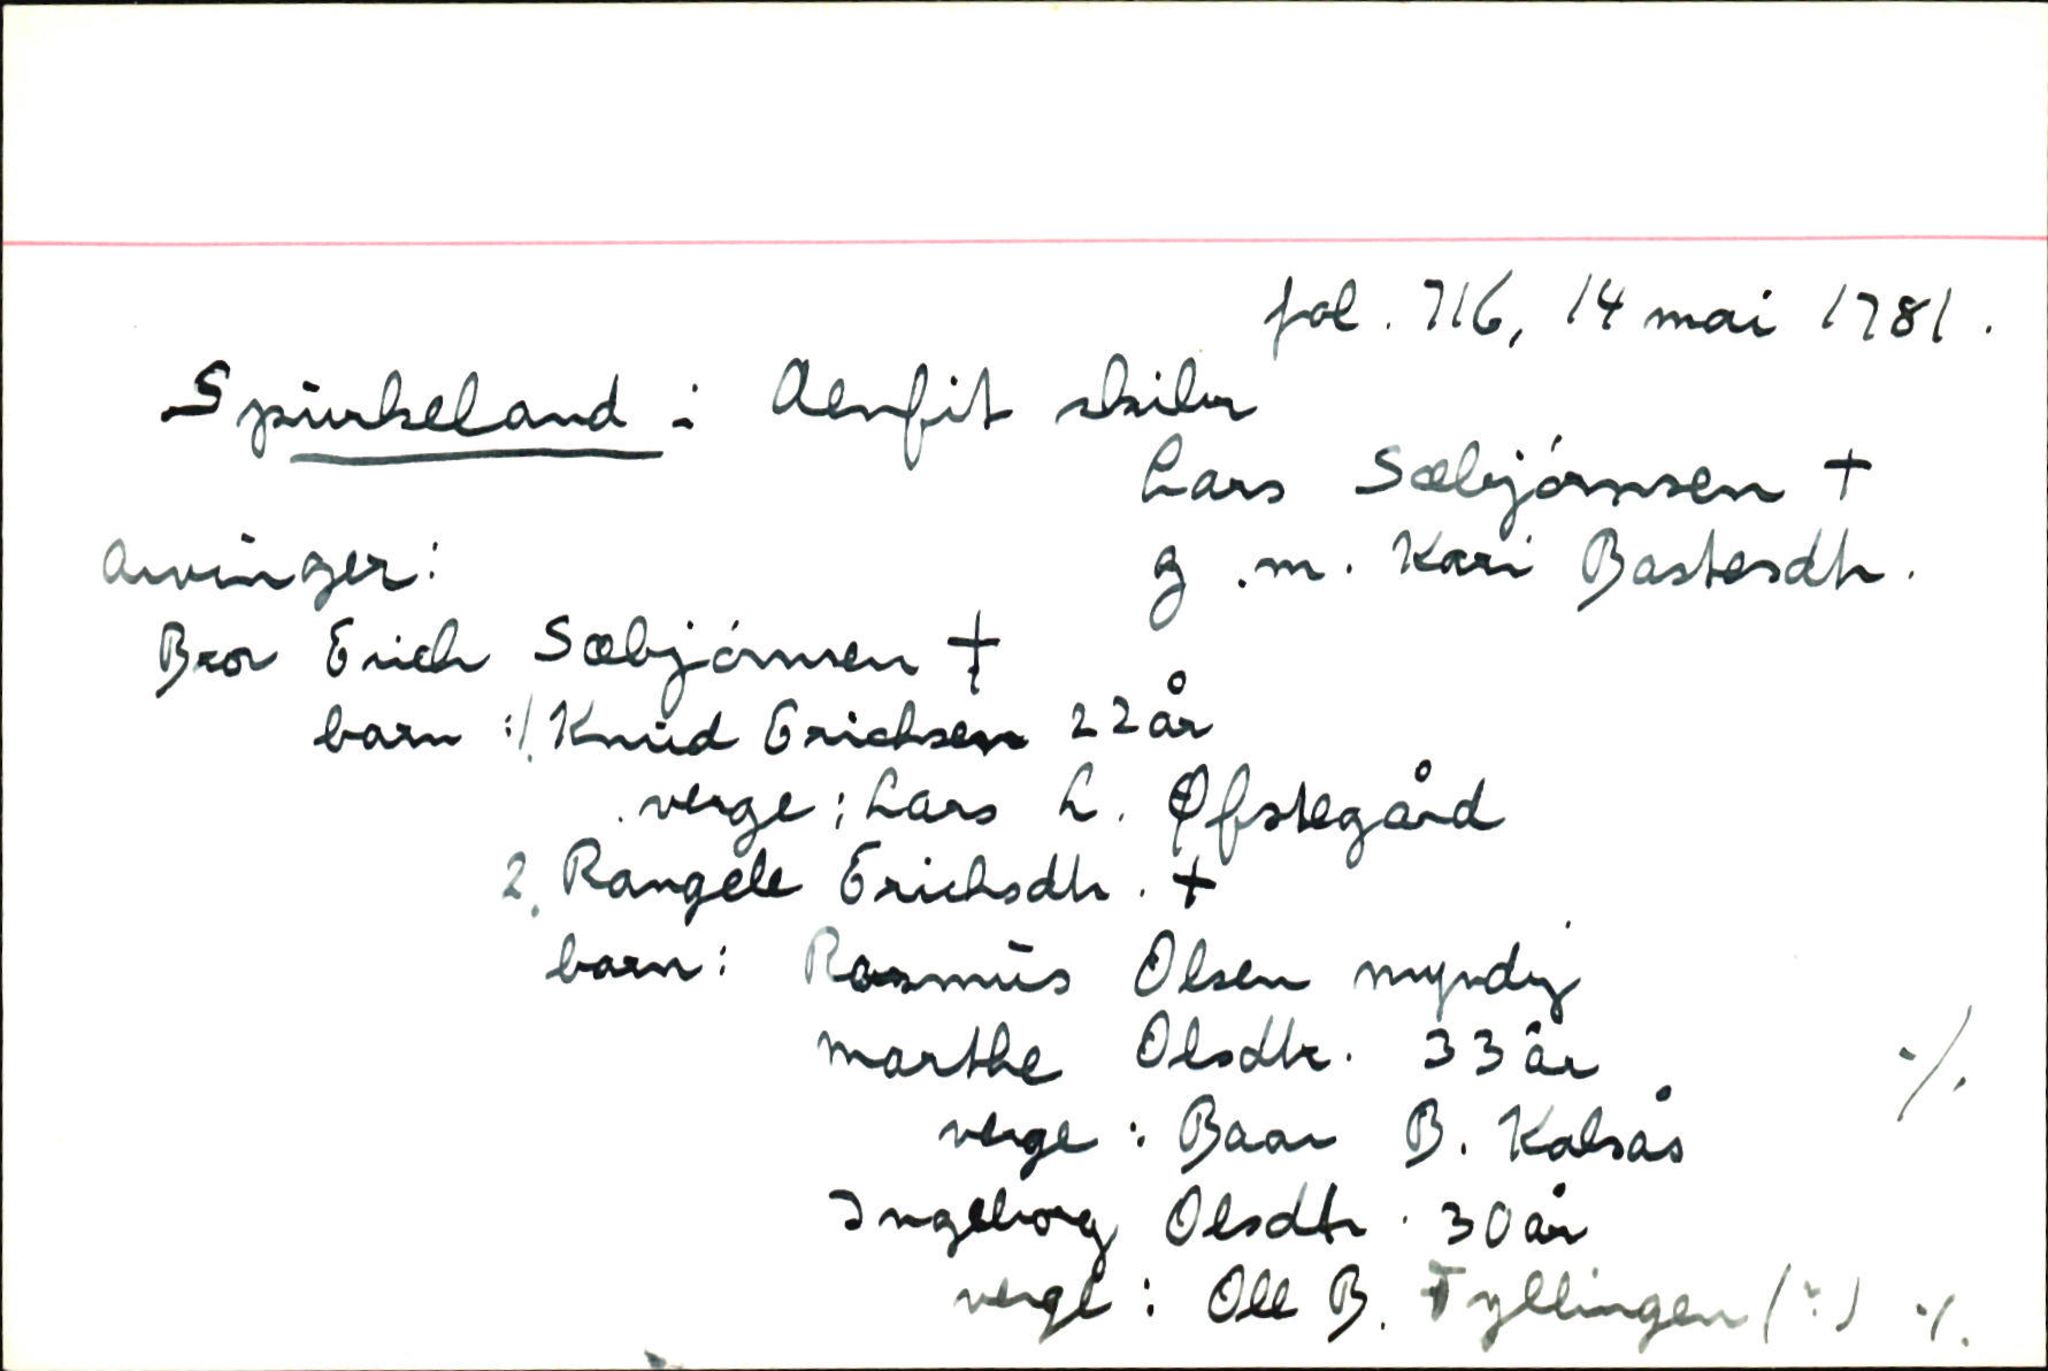 fol. 716, 14 mai 1781.
Spurkeland : Alenfit skiber
Lars Sæbjørnsen †
arvinger:
g.m. Kari Bastesdtr.
Bror Erich Sæbjørnsen †
barn : 1. Knud Erichsen 22 år
verge : Lars L. Øfstegård
2. Rangele Erichsdtr. †
barn : Rasmus Olsen myndig
Marthe Olsdtr. 33 år
./.
verge : Baar B. Kalsås
Ingeborg Olsdtr. 30 år
verge : Ole B. Tyllingen (?) ./.